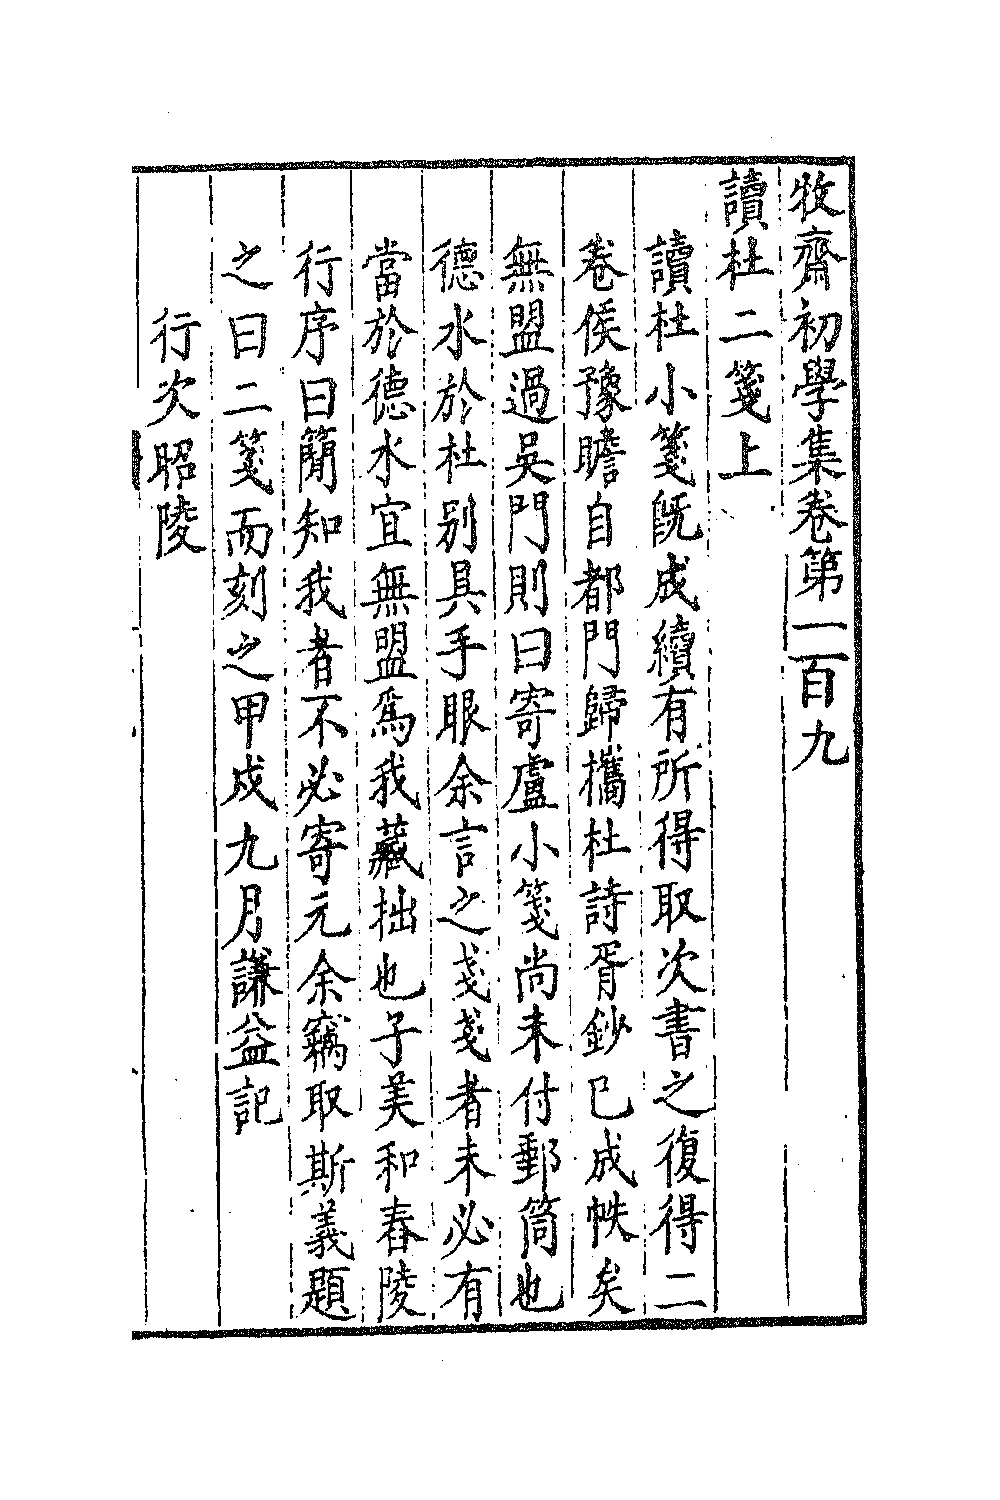 牧齋初學集卷第一百九
讀杜二箋上
讀杜小箋旣成續有所得取次書之復得二
卷侯豫瞻自都門歸攜杜詩胥鈔已成帙矣
無盟過吳門則曰寄盧小箋尚未付郵筒也
德水於杜別具手眼余言之戔戔者未必有
當於德水宜無盟爲我藏拙也子美和舂陵
行序曰簡知我者不必寄元余竊取斯義題
之曰二箋而刻之甲戌九月謙益記
行次昭陵